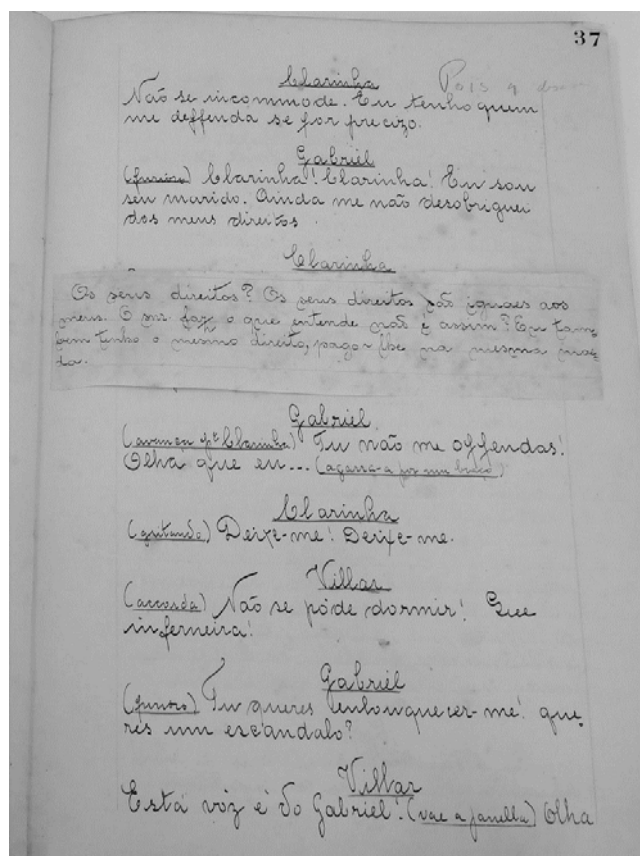 37
Clarinha
Pois q
Não se incommode. Eu tenho quem
me deffenda se for precizo.
Gabriel
(furioso) Clarinha! Clarinha! Eu sou
seu marido. Ainda me não desobriguei
dos meus direitos.
Clarinha
Os seus direitos? Os seus direitos são iguaes aos
meus. O snr. faz o que entende não é assim? Eu tam,
bem tenho o mesmo direito, pagar lhe na mesma moé-
da.
Gabriel
(avança pª Clarinha) Tu não me offendas!
Olha que eu... (agarra-a por um braço)
Clarinha
(gritando) Deixe-me! Deixe-me.
Villar
(accorda) Não se póde dormir! Que
inferneira!
Gabriel
(furioso) Tu queres enlouquecer-me! que,
res um escandalo?
Villar
Esta vóz é do Gabriel! (vae a janella) Olha